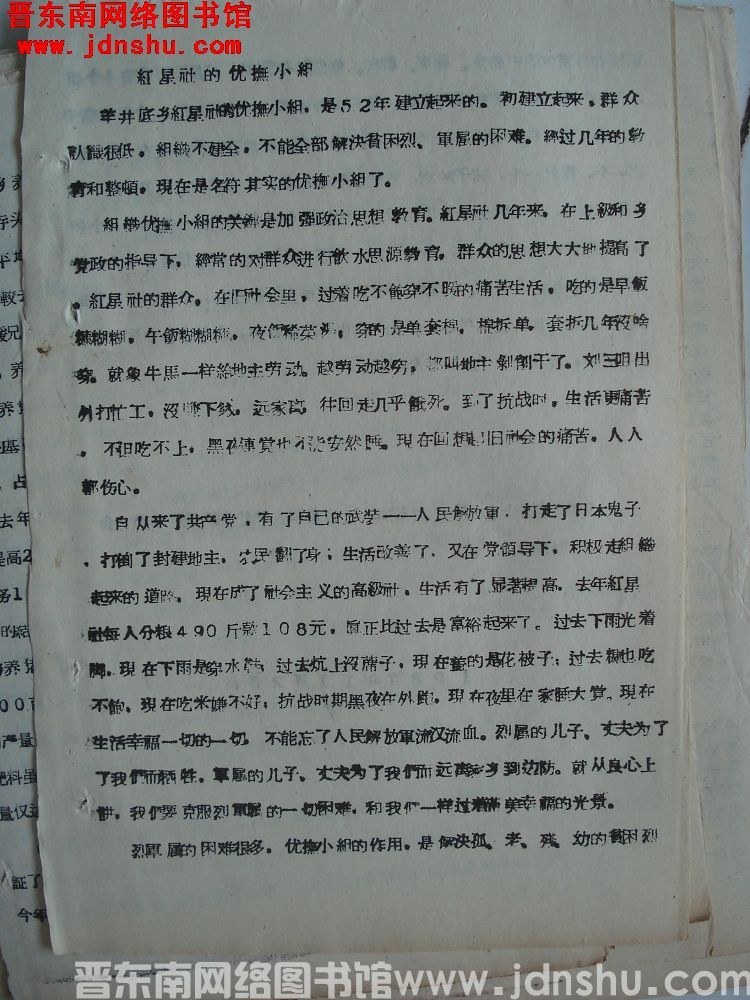 晋东南网络图书馆
www.jdnshu.com
紅星社的优撫小組
羊井底乡紅星社的优撫小組，是52年建立起来的。初建立起来，群众
认識很低，組織不健全，不能全部解决貧困烈、軍属的困难。經过几年的教
育和整頓，現在是名符其实的优撫小組了。
組織优撫小組的关鍵是加强政治思想教育。紅星社几年来，在上級和乡
党政的指导下，經常的对群众进行飲水思源教育，群众的思想大大地提高了
。紅星社的群众，在旧社会里，过着吃不飽穿不暖的痛苦生活，吃的是早飯
糠糊糊，午飯糊糊糠，夜飯稀菜，穿的是单套棉，棉拆单，套拆几年沒啥
穿。就象牛馬一样給地主劳动。越劳动越穷，都叫地主剝削干了。刘三明出
外打忙工，沒賺下錢，远家窩，往回走几乎餓死。到了抗战时，生活更痛苦
，不但吃不上，黑夜連覚也不能安然睡。現在回想起旧社会的痛苦，人人
都伤心。
自从来了共产党，有了自己的武装——人民解放軍，打走了日本鬼子
，打倒了封建地主，农民翻了身；生活改善了，又在党領导下，积极走組織
起来的道路，現在成了社会主义的高級社，生活有了显著提高，去年紅星
社每人分粮490斤款108元，眞正比过去是富裕起来了。过去下雨光着
脚，現在下雨是穿水鞋；过去炕上沒蓆子，現在蓋的是花被子；过去糠也吃
不飽，現在吃米嫌不好；抗战时期黑夜在外跑，現在夜里在家睡大覚，現在
生活幸福一切的一切，不能忘了人民解放軍流汉流血。烈属的儿子、丈夫为了
了我們而牺牲，軍属的儿子、丈夫为了我們而远离家乡到边防。就从良心上
讲，我們要克服烈軍属的一切困难，和我們一样过着满美幸福的光景。
烈軍属的困难很多，优撫小組的作用，是解决孤、老、残、幼的貧困烈
晋东南网络图书馆 www.jdnshu.com